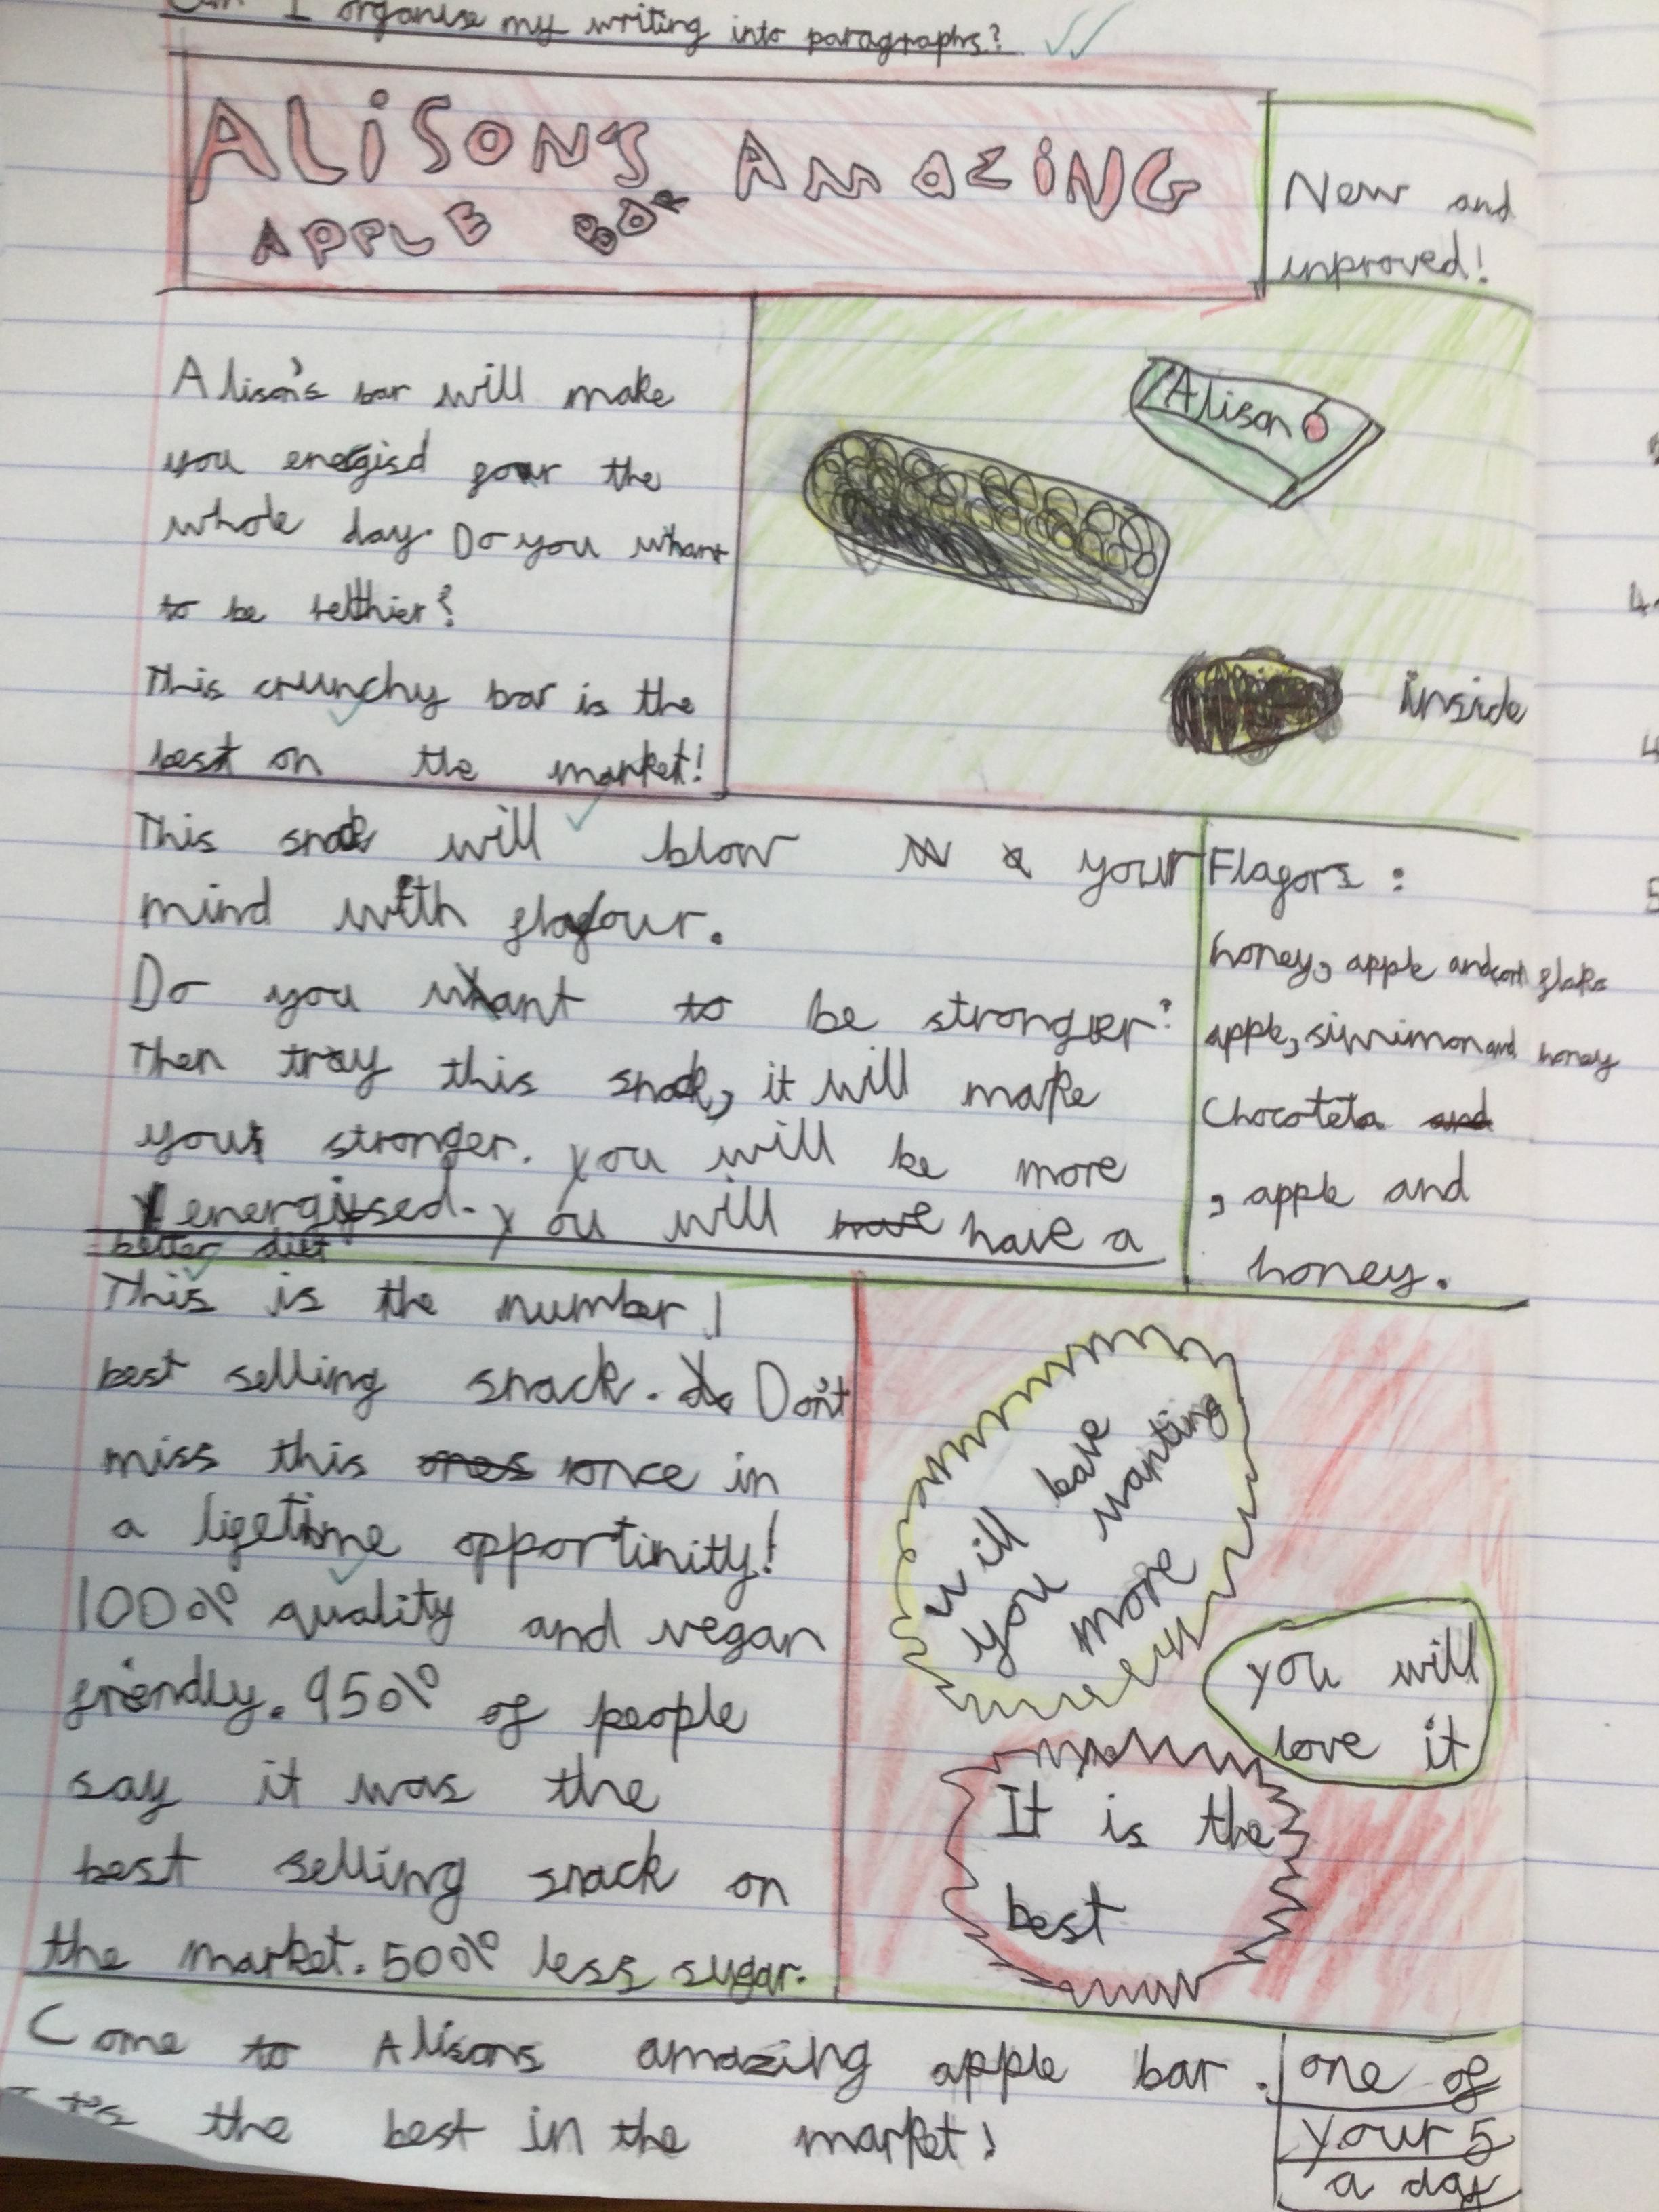 Can I organise my writing into paragraphs?
ALiSON'S AmaZiNG
APPLE BaR
New and
inproved!
Alison's bar will make
you energisd four the
whole day. Do you whant
to be helthier?
This crunchy bar is the
best on the market!
Alison
inside
This snack will blow your
mind with flavour.
Do you want to be stronger?
Then tray this snack, it will make
you stronger. You will be more
energised. You will have a
better diet
Flavors :
honey, apple and corn flake
apple, sinnimon and honey
Chocoteta
, apple and
honey.
This is the number 1
best selling snack. Don't
miss this once in
a lifetime opportinity!
100% quality and vegan
friendly. 95% of people
say it was the
best selling snack on
the market. 50% less sugar.
will leave
you wanting
more
you will
love it
It is the
best
Come to Alisons amazing apple bar.
It's the best in the market!
one of
your 5
a day
4
4
5